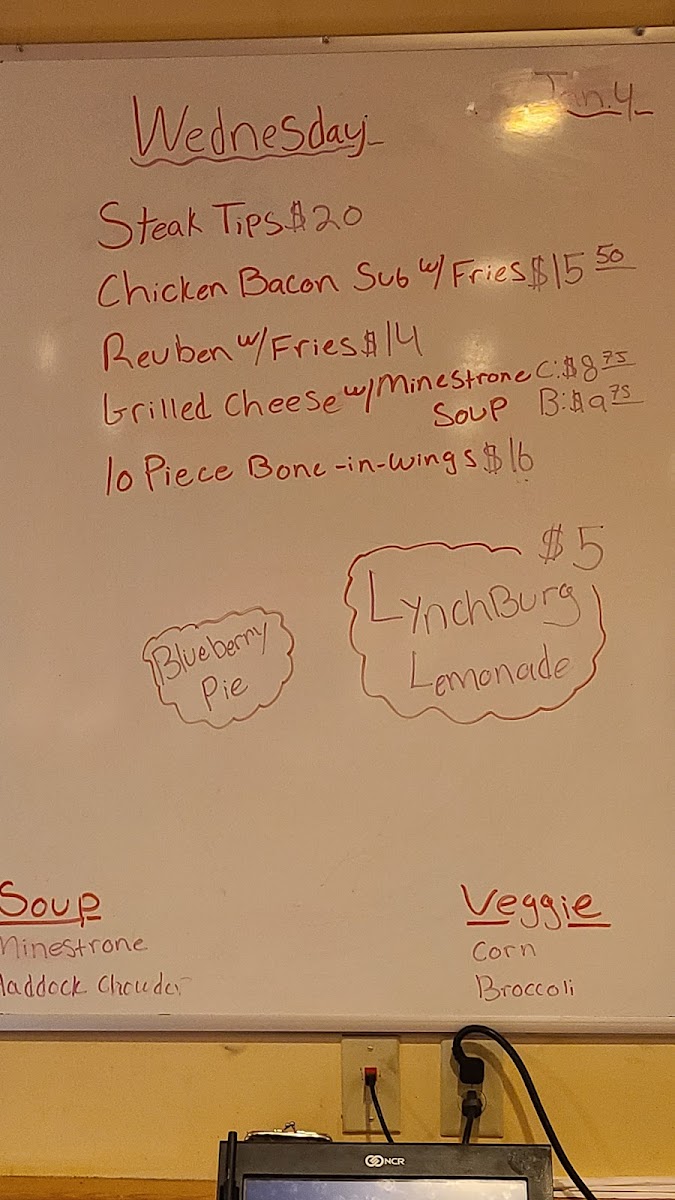 Jan. 4
Wednesday
Steak Tips $20
Chicken Bacon Sub w/ Fries $15 50
Reuben w/ Fries $14
Grilled Cheese w/ Minestrone C: $8 75
Soup B: $9 75
10 Piece Bone-in-wings $16
$5
LynchBurg
Lemonade
Blueberry
Pie
Soup
Minestrone
Haddock Chowder
Veggie
Corn
Broccoli
NCR